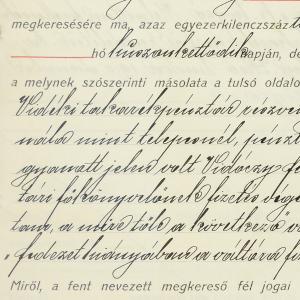 megkeresésére ma, azaz egyezerkilencszáz
hó huszonkettödik napján, de
a melynek szószerinti másolata a tulsó oldalo
Vidéki takarékpénztár részvén
nála mint telepesnél, pénzt
gyanatt jelen volt Vidóczy fe
tári főkönyvelőnek fizetés vége
tam, a mire től a következő v
"fedezet hiányában a váltóra fiz
Miről, a fent nevezett megkereső fél jogai